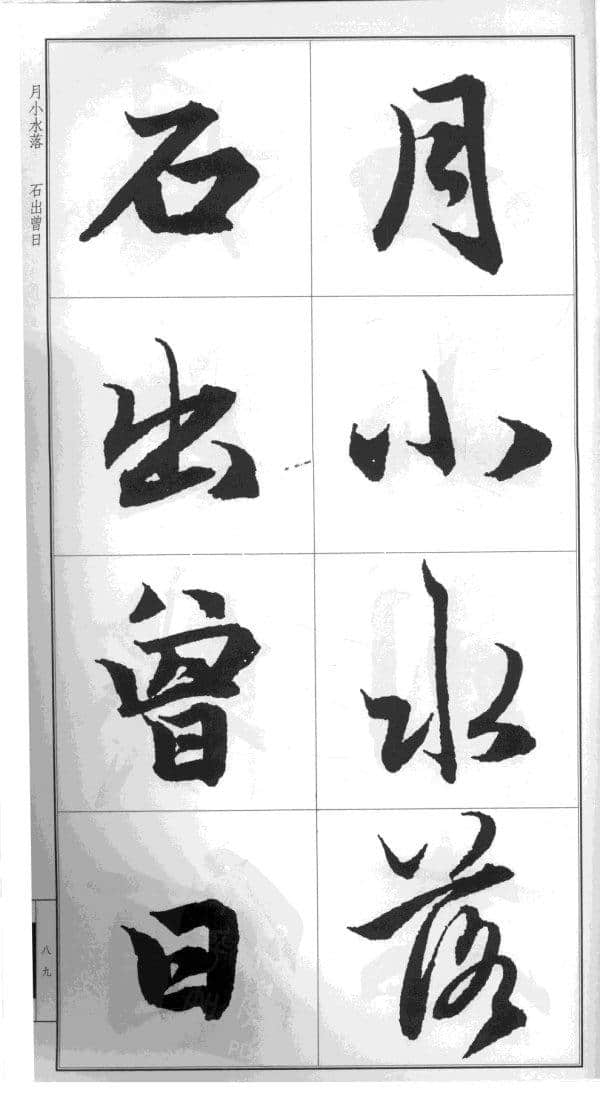 月小水落
石出曾日
月小水落 石出曾日
八九